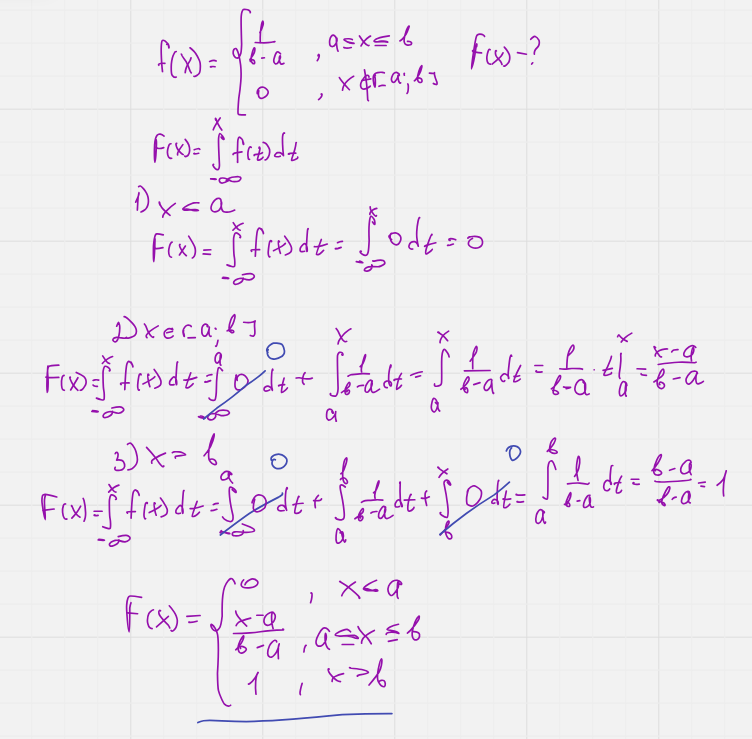 f(x) = { 1/(b-a) , a ≤ x ≤ b F(x) - ?
0 , x ∉ [a; b]
F(x) = ∫_{-∞}^{x} f(t) dt
1) x < a
F(x) = ∫_{-∞}^{x} f(x) dt = ∫_{-∞}^{x} 0 dt = 0
2) x ∈ [a; b]
F(x) = ∫_{-∞}^{x} f(x) dt = ∫_{-∞}^{a} 0 dt 0 + ∫_{a}^{x} 1/(b-a) dt = ∫_{a}^{x} 1/(b-a) dt = 1/(b-a) · t |_{a}^{x} = (x-a)/(b-a)
3) x > b
F(x) = ∫_{-∞}^{x} f(x) dt = ∫_{-∞}^{a} 0 dt 0 + ∫_{a}^{b} 1/(b-a) dt + ∫_{b}^{x} 0 dt 0 = ∫_{a}^{b} 1/(b-a) dt = (b-a)/(b-a) = 1
F(x) = { 0 , x < a
(x-a)/(b-a) , a ≤ x ≤ b
1 , x > b